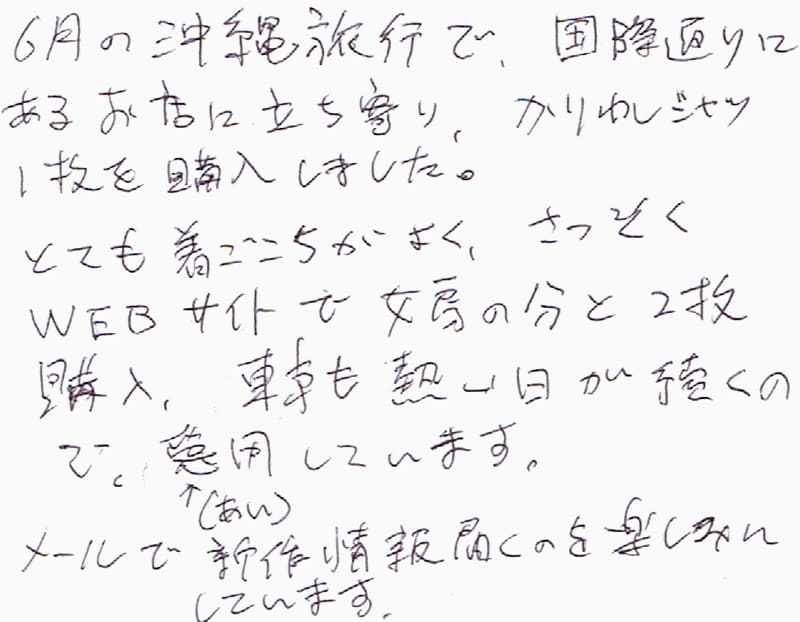 6月の沖縄旅行で、国際通りに
あるお店に立ち寄り、かりゆしシャツ
1枚を購入しました。
とても着ごこちがよく、さっそく
WEBサイトで女房の分と2枚
購入、東京も熱い日が続くの
で、愛用しています。
↑(あい)
メールで新作情報届くのを楽しみに
しています。